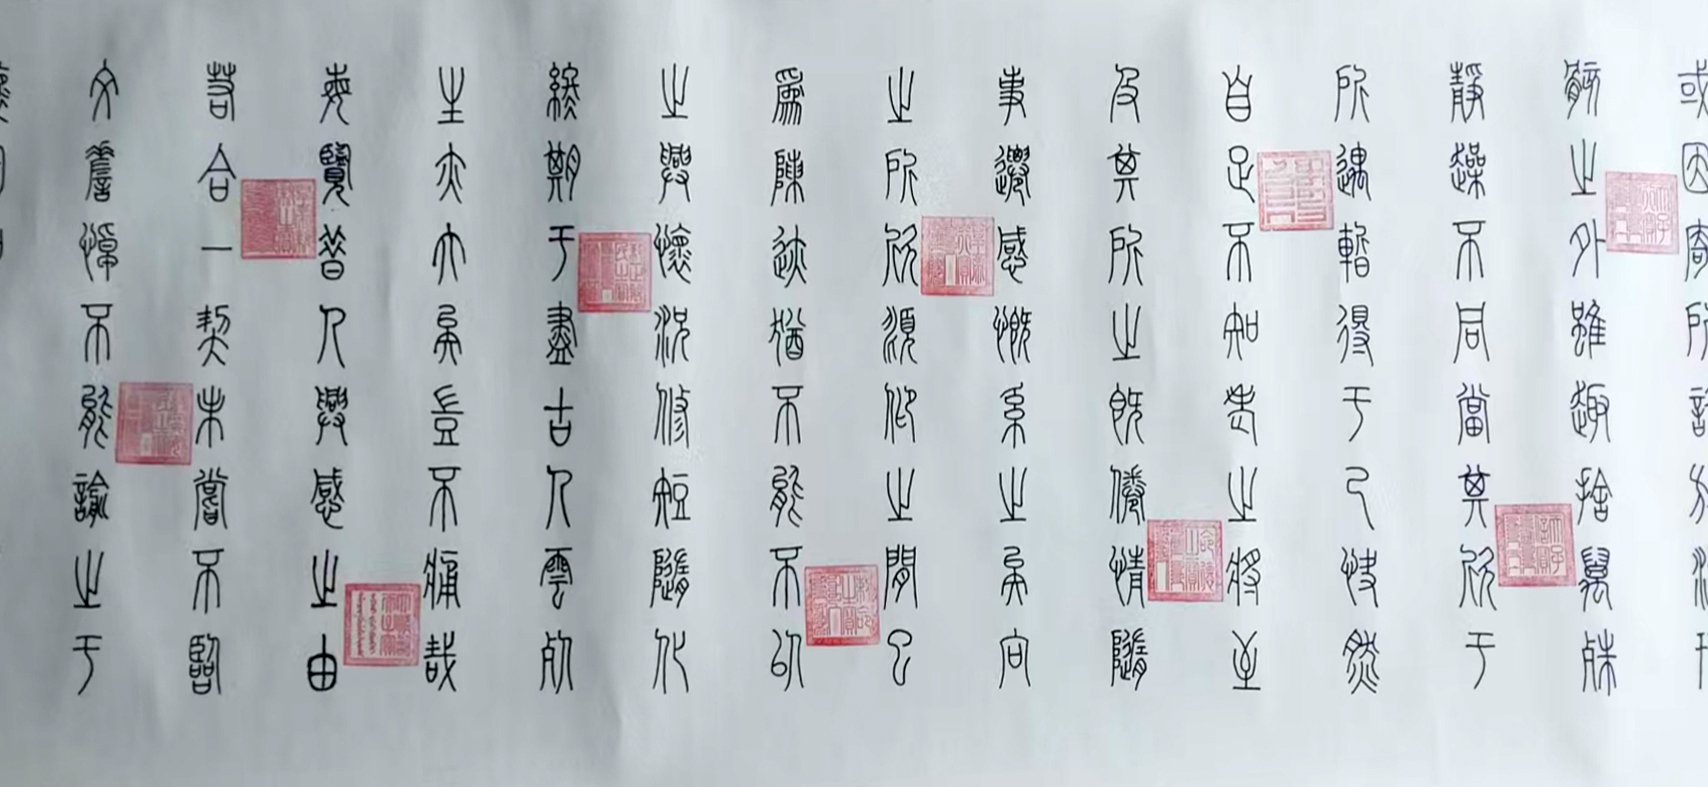 或因寄所託放浪形
骸之外雖趣捨萬殊
靜躁不同當其欣于
所遇暫得于己快然
自足不知老之將至
及其所之既倦情隨
事遷感慨系之矣向
之所欣頫仰之間已
為陳迹猶不能不以
之興懷況修短隨化
終期于盡古人雲死
生亦大矣豈不痛哉
每覽昔人興感之由
若合一契未嘗不臨
文嗟悼不能諭之于